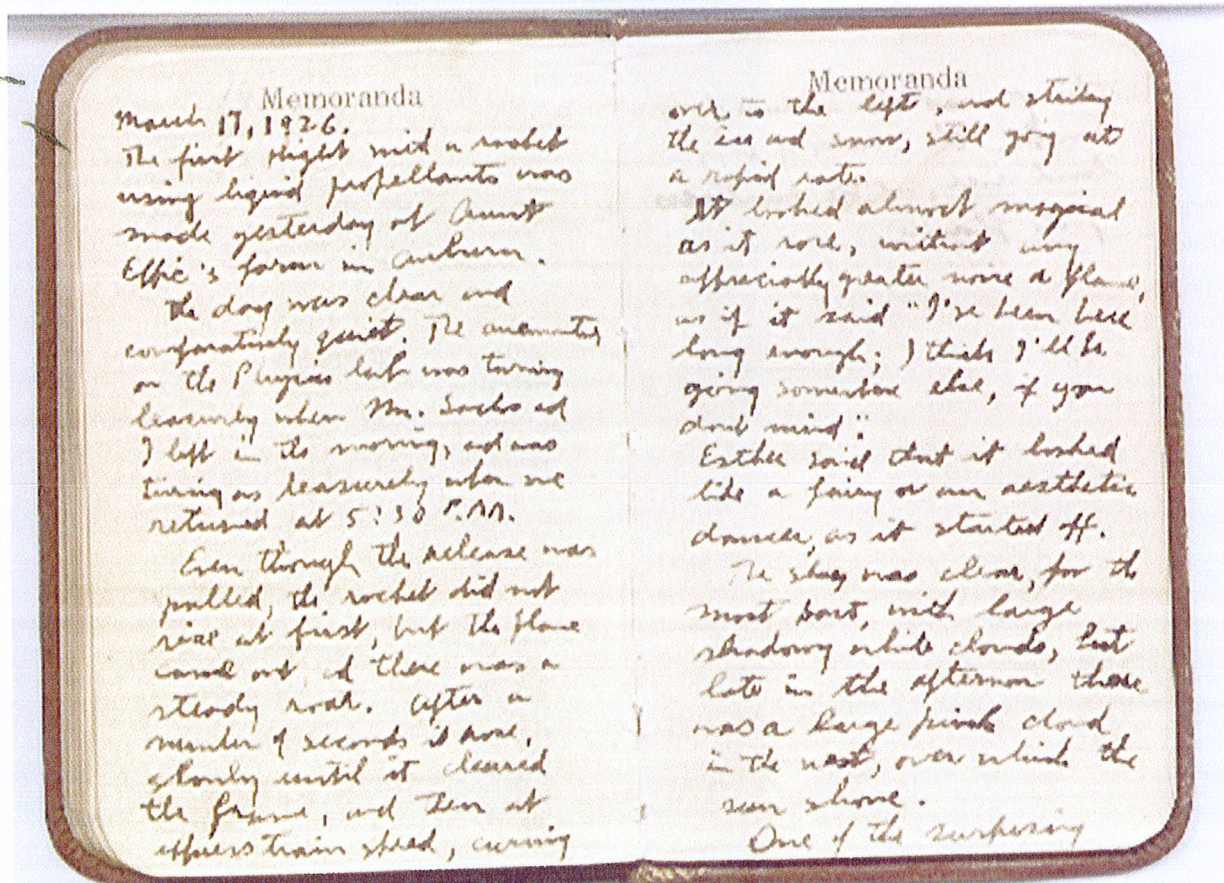 Memoranda
March 17, 1926.
The first flight with a rocket
using liquid propellants was
made yesterday at Aunt
Effie's farm in Auburn.
The day was clear and
comparatively quiet. The anemometer
on the Physics lab was turning
leasurely when Mr. Sachs and
I left in the morning, and was
turning as leasurely when we
returned at 5:30 P.M.
Even though the release was
pulled, the rocket did not
rise at first, but the flame
came out, and there was a
steady roar. After a
number of seconds it rose,
slowly until it cleared
the frame, and then at
express train speed, curving
Memoranda
over to the left, and striking
the ice and snow, still going at
a rapid rate.
It looked almost magical
as it rose, without any
appreciably greater noise or flame,
as if it said "I've been here
long enough; I think I'll be
going somewhere else, if you
don't mind".
Esther said that it looked
like a fairy or an aesthetic
dancer, as it started off.
The sky was clear, for the
most part, with large
shadowy white clouds, but
late in the afternoon there
was a large pink cloud
in the west, over which the
sun shone.
One of the surprising